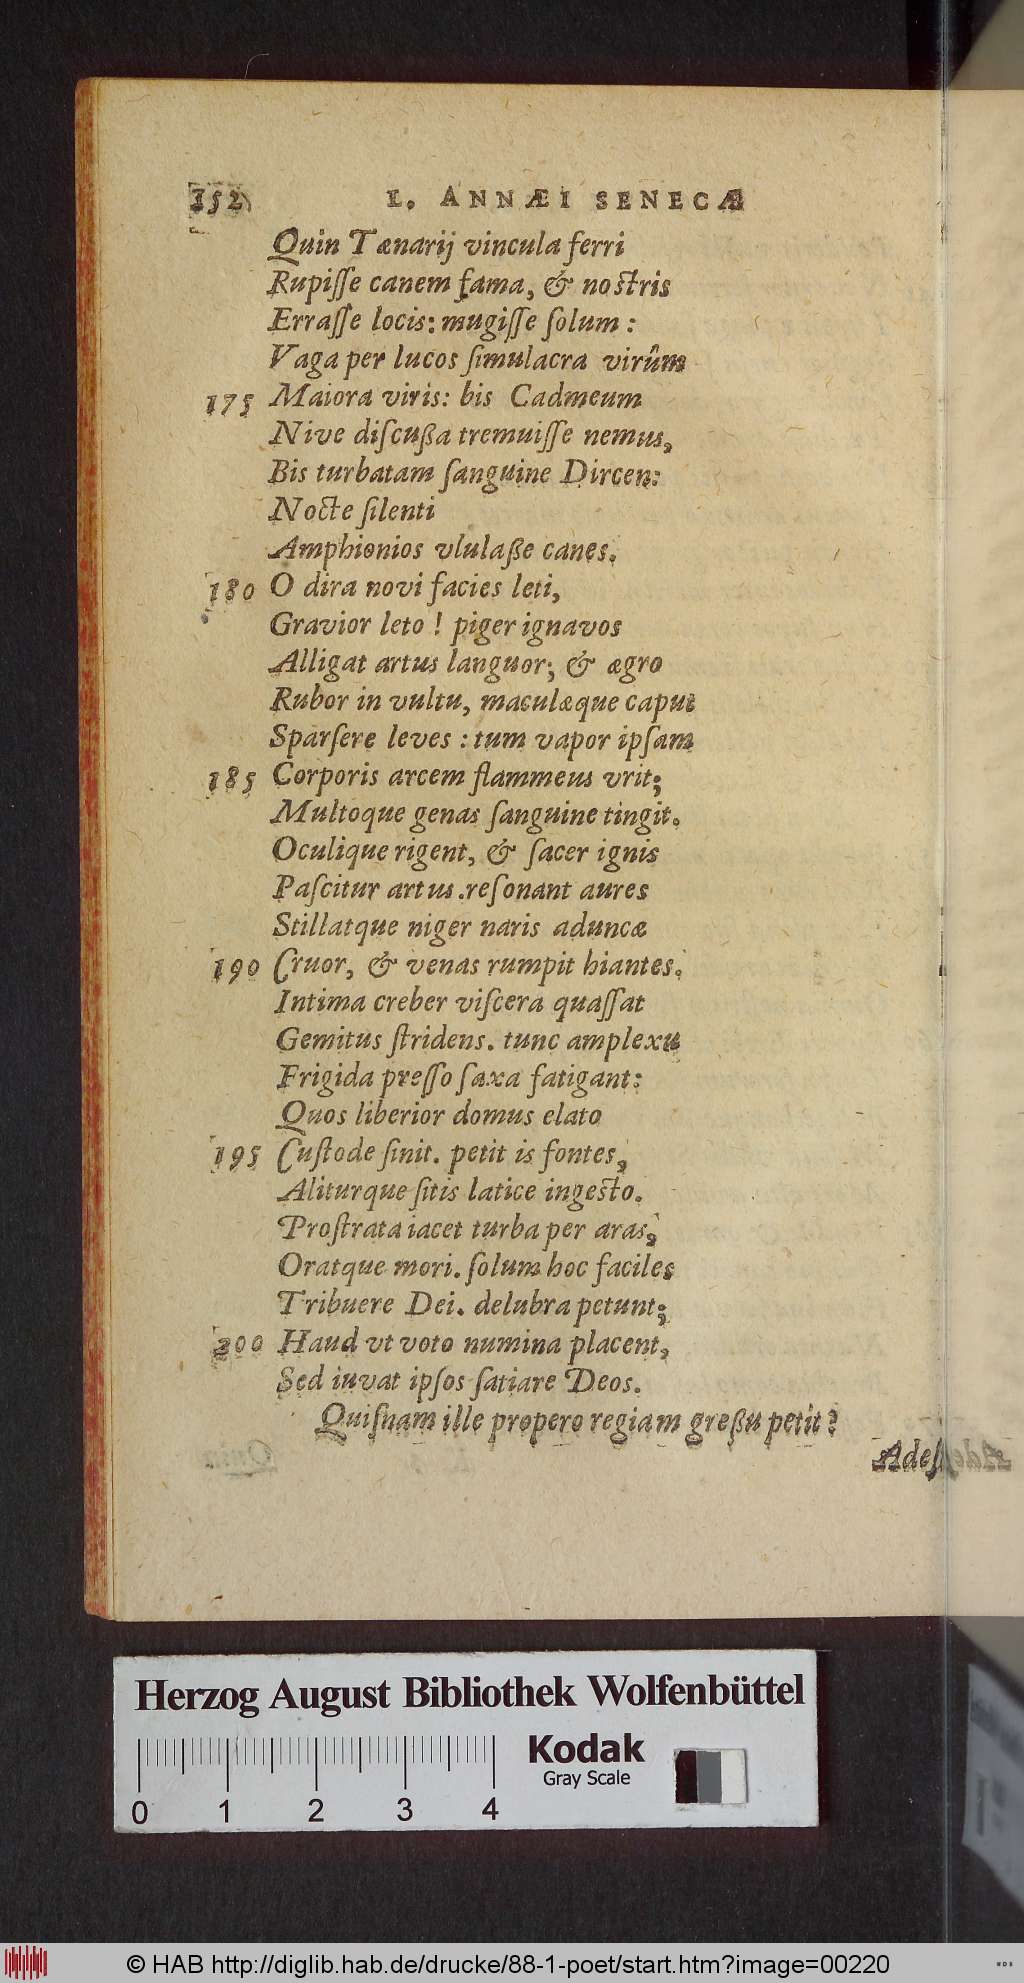 152 L. ANNÆI SENECÆ
Quin Tænarij vincula ferri
Rupiſſe canem fama, & noſtris
Erraſſe locis: mugiſſe ſolum:
Vaga per lucos ſimulacra virûm
175 Maiora viris: bis Cadmeum
Nive diſcußa tremuiſſe nemus,
Bis turbatam ſanguine Dircen:
Nocte ſilenti
Amphionios vlulaße canes.
180 O dira novi facies leti,
Gravior leto! piger ignavos
Alligat artus languor; & ægro
Rubor in vultu, maculæque caput
Sparſere leves: tum vapor ipſam
185 Corporis arcem flammeus vrit;
Multoque genas ſanguine tingit.
Oculique rigent, & ſacer ignis
Paſcitur artus. reſonant aures
Stillatque niger naris aduncæ
190 Cruor, & venas rumpit hiantes.
Intima creber viſcera quaſſat
Gemitus ſtridens. tunc amplexu
Frigida preſſo ſaxa fatigant:
Quos liberior domus elato
195 Cuſtode ſinit. petit is fontes,
Aliturque ſitis latice ingeſto.
Proſtrata iacet turba per aras,
Oratque mori. ſolum hoc faciles
Tribuere Dei. delubra petunt;
200 Haud vt voto numina placent,
Sed iuvat ipſos ſatiare Deos.
Quiſnam ille propero regiam greßu petit?
Adeſ
Herzog August Bibliothek Wolfenbüttel
Kodak
Gray Scale
0 1 2 3 4
© HAB http://diglib.hab.de/drucke/88-1-poet/start.htm?image=00220